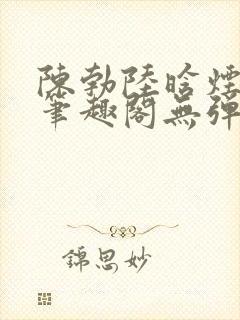 陳勃陸晗煙
筆趣閣無彈
錦思妙